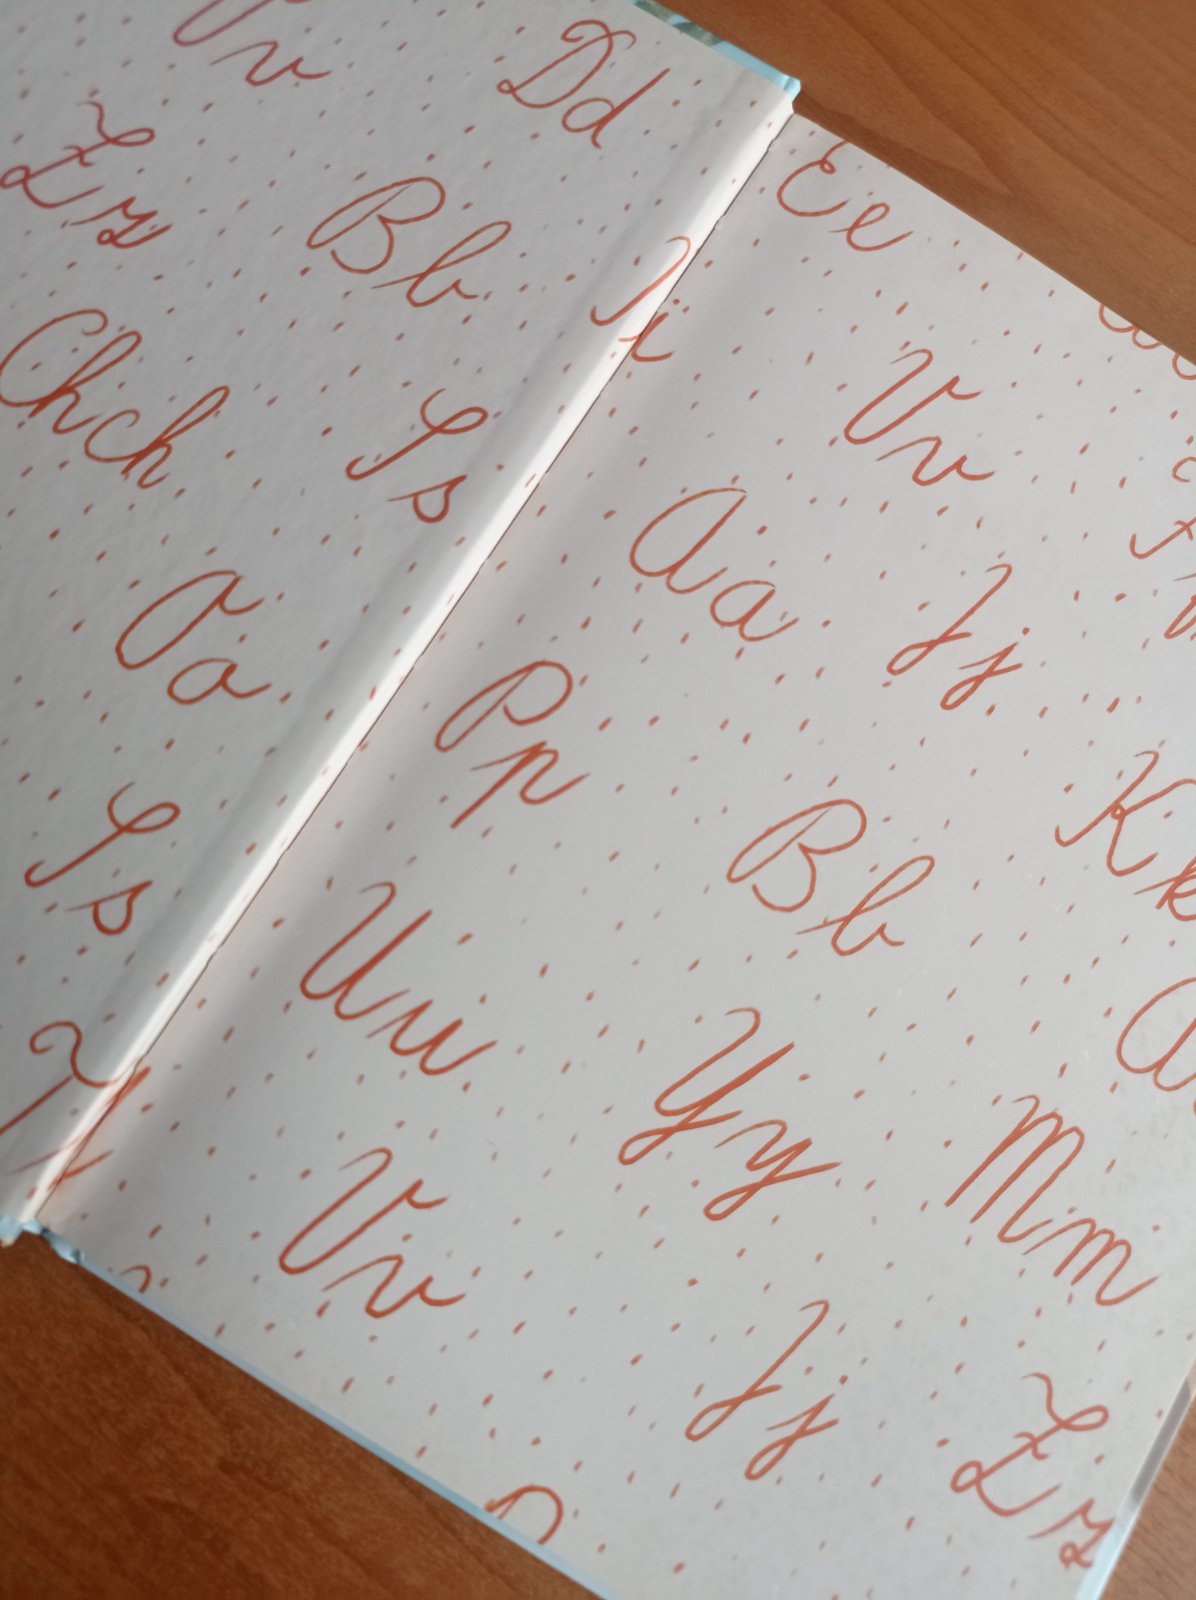 Vv
Dd
Zz
Bb
Chch
Ss
Oo
Ss
Ii
Ee
Vv
Aa
Jj
Pp
Kk
Bb
Uu
Yy
Mm
Vv
Jj
Zz